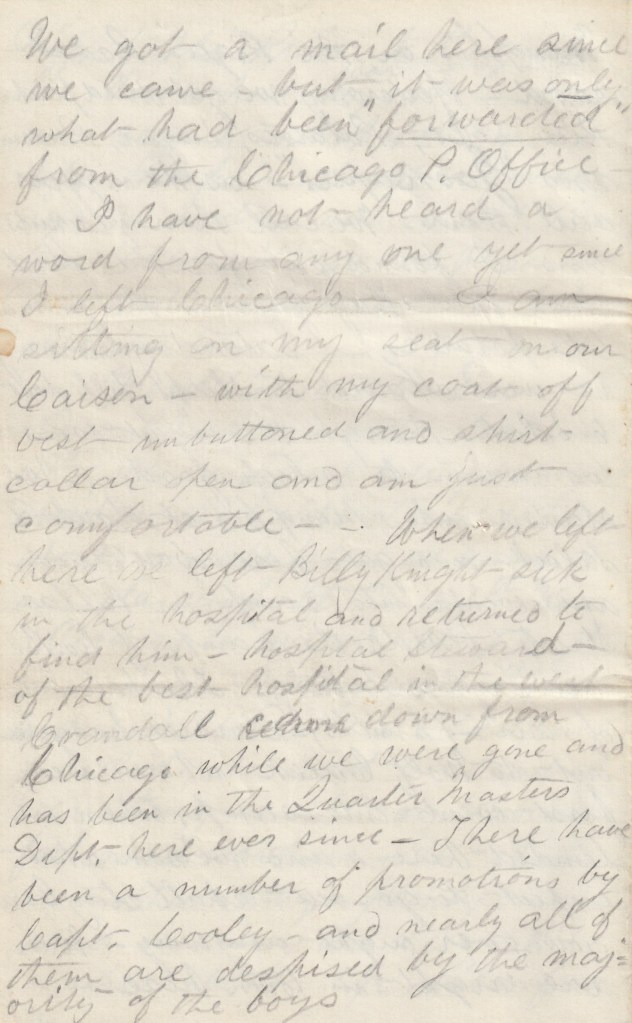 We got a mail here since
we came - but it was only
what had been "forwarded"
from the Chicago P. Office -
I have not heard a
word from any one yet since
I left Chicago - I am
sitting on my seat on our
Caisen - with my coat off
vest unbuttoned and shirt
collar open and am just
comfortable - - . When we left
here we left Billy Knight sick
in the hospital and returned to
find him - hospital Steward -
of the best hospital in the west
Crandall came down from
Chicago while we were gone and
has been in the Quarter Masters
Dept. here ever since - There have
been a number of promotions by
Capt. Cooley - and nearly all of
them are despised by the maj=
ority of the boys